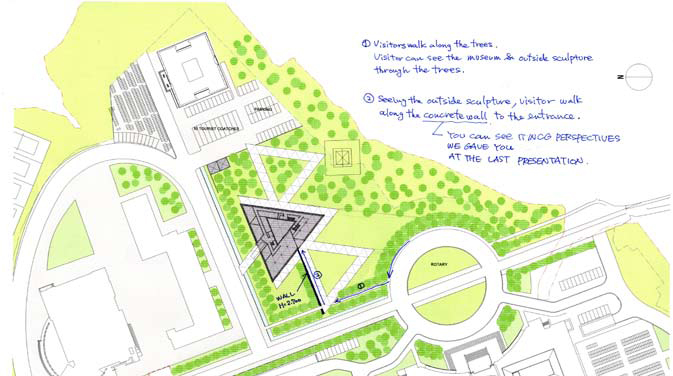 ① Visitors walk along the trees.
Visitor can see the museum & outside sculpture
through the trees.
② Seeing the outside sculpture, visitor walk
along the concrete wall to the entrance.
YOU CAN SEE IT IN CG PERSPECTIVES
WE GAVE YOU
AT THE LAST PRESENTATION.
N
PARKING
10 TOURIST COATCHES
ROTARY
①
②
WALL